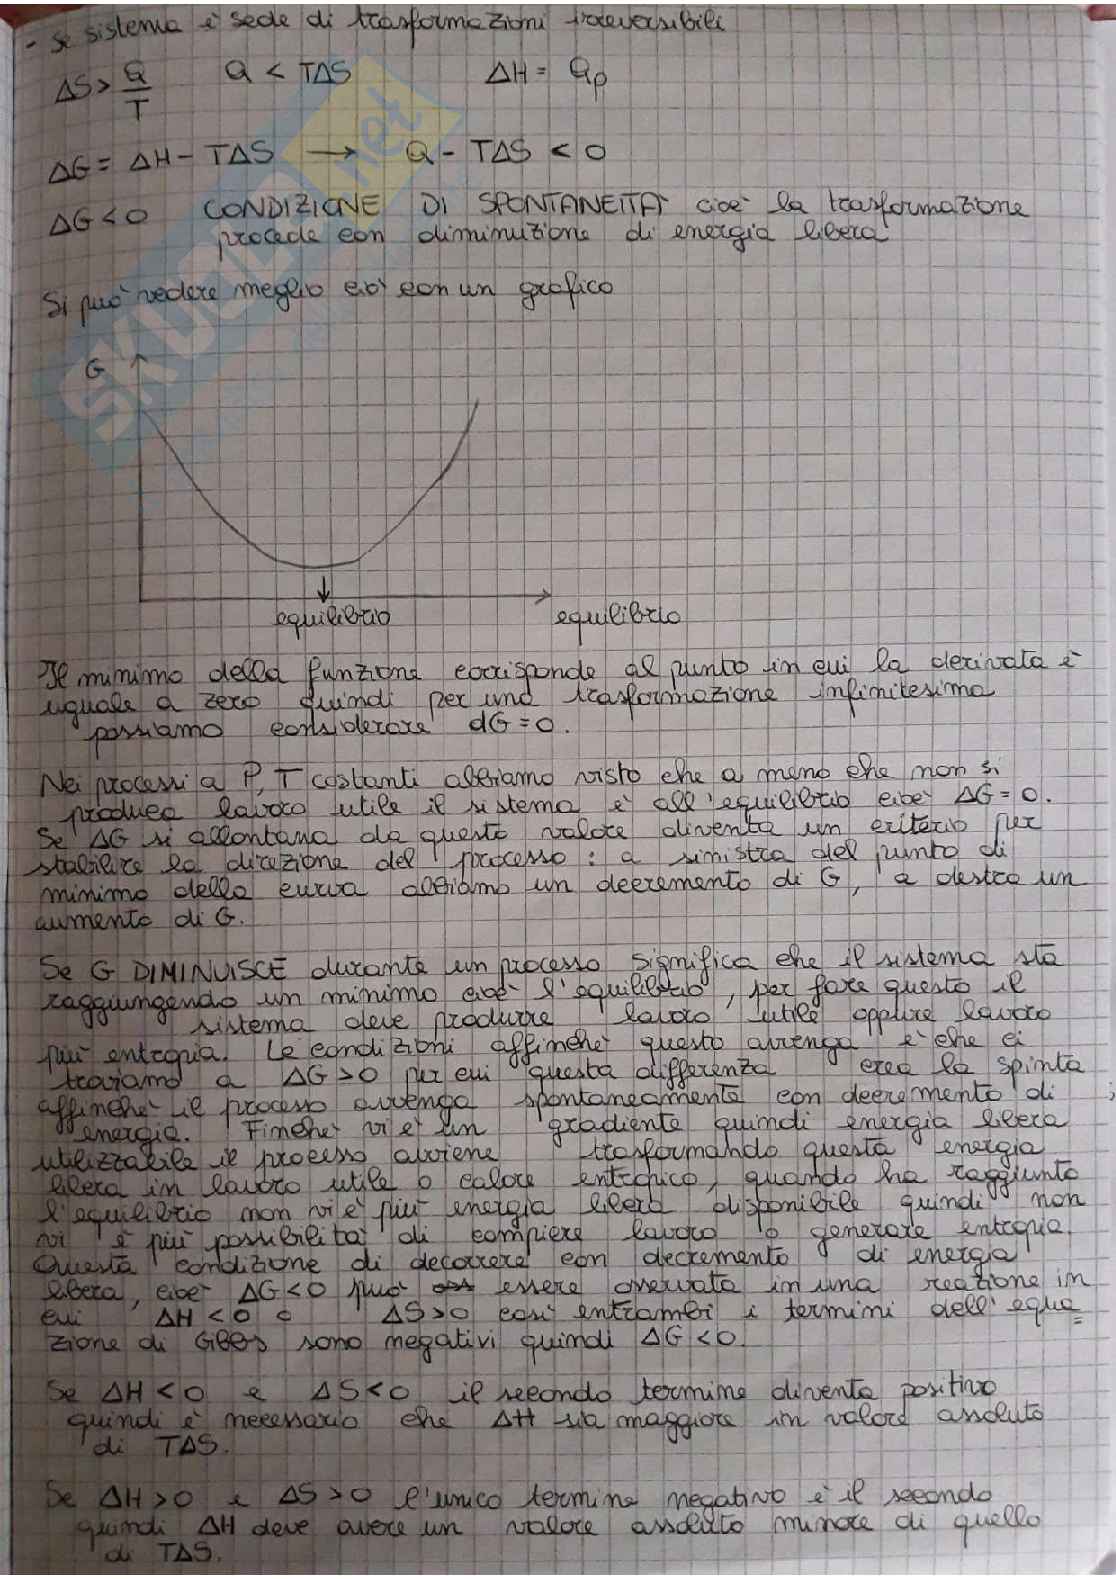 - se sistema è sede di trasformazioni irreversibili
ΔS > Q/T Q < TΔS ΔH = Qp
ΔG = ΔH - TΔS → Q - TΔS < 0
ΔG < 0 CONDIZIONE DI SPONTANEITÀ cioè la trasformazione
procede con diminuzione di energia libera
Si può vedere meglio ciò con un grafico
G
equilibrio equilibrio
Il minimo della funzione corrisponde al punto in cui la derivata è
uguale a zero quindi per una trasformazione infinitesima
possiamo considerare dG = 0.
Nei processi a P, T costanti abbiamo visto che a meno che non si
produca lavoro utile il sistema è all'equilibrio cioè ΔG = 0.
Se ΔG si allontana da questo valore diventa un criterio per
stabilire la direzione del processo: a sinistra del punto di
minimo della curva abbiamo un decremento di G, a destra un
aumento di G.
Se G DIMINUISCE durante un processo significa che il sistema sta
raggiungendo un minimo cioè l'equilibrio, per fare questo il
sistema deve produrre lavoro utile oppure lavoro
più entropia. Le condizioni affinché questo avvenga è che ci
troviamo a ΔG > 0 per cui questa differenza crea la spinta
affinché il processo avvenga spontaneamente con decremento di
energia. Finché vi è un gradiente quindi energia libera
utilizzabile il processo avviene trasformando questa energia
libera in lavoro utile o calore entropico, quando ha raggiunto
l'equilibrio non vi è più energia libera disponibile quindi non
vi è più possibilità di compiere lavoro o generare entropia.
Questa condizione di decorrere con decremento di energia
libera, cioè ΔG < 0 può essere osservata in una reazione in
cui ΔH < 0 e ΔS > 0 così entrambi i termini dell'equa=
zione di GBBS sono negativi quindi ΔG < 0.
Se ΔH < 0 e ΔS < 0 il secondo termine diventa positivo
quindi è necessario che ΔH sia maggiore in valore assoluto
di TΔS.
Se ΔH > 0 e ΔS > 0 l'unico termine negativo è il secondo
quindi ΔH deve avere un valore assoluto minore di quello
di TΔS.
SKUOLA.net